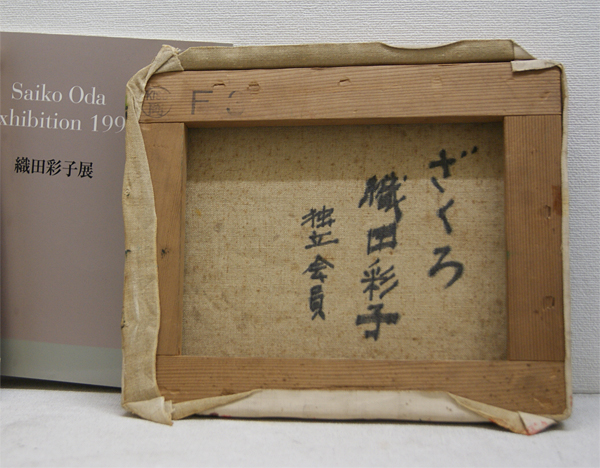 Saiko Oda
xhibition 199
織田彩子展
F
ざくろ
織田彩子
独立会員